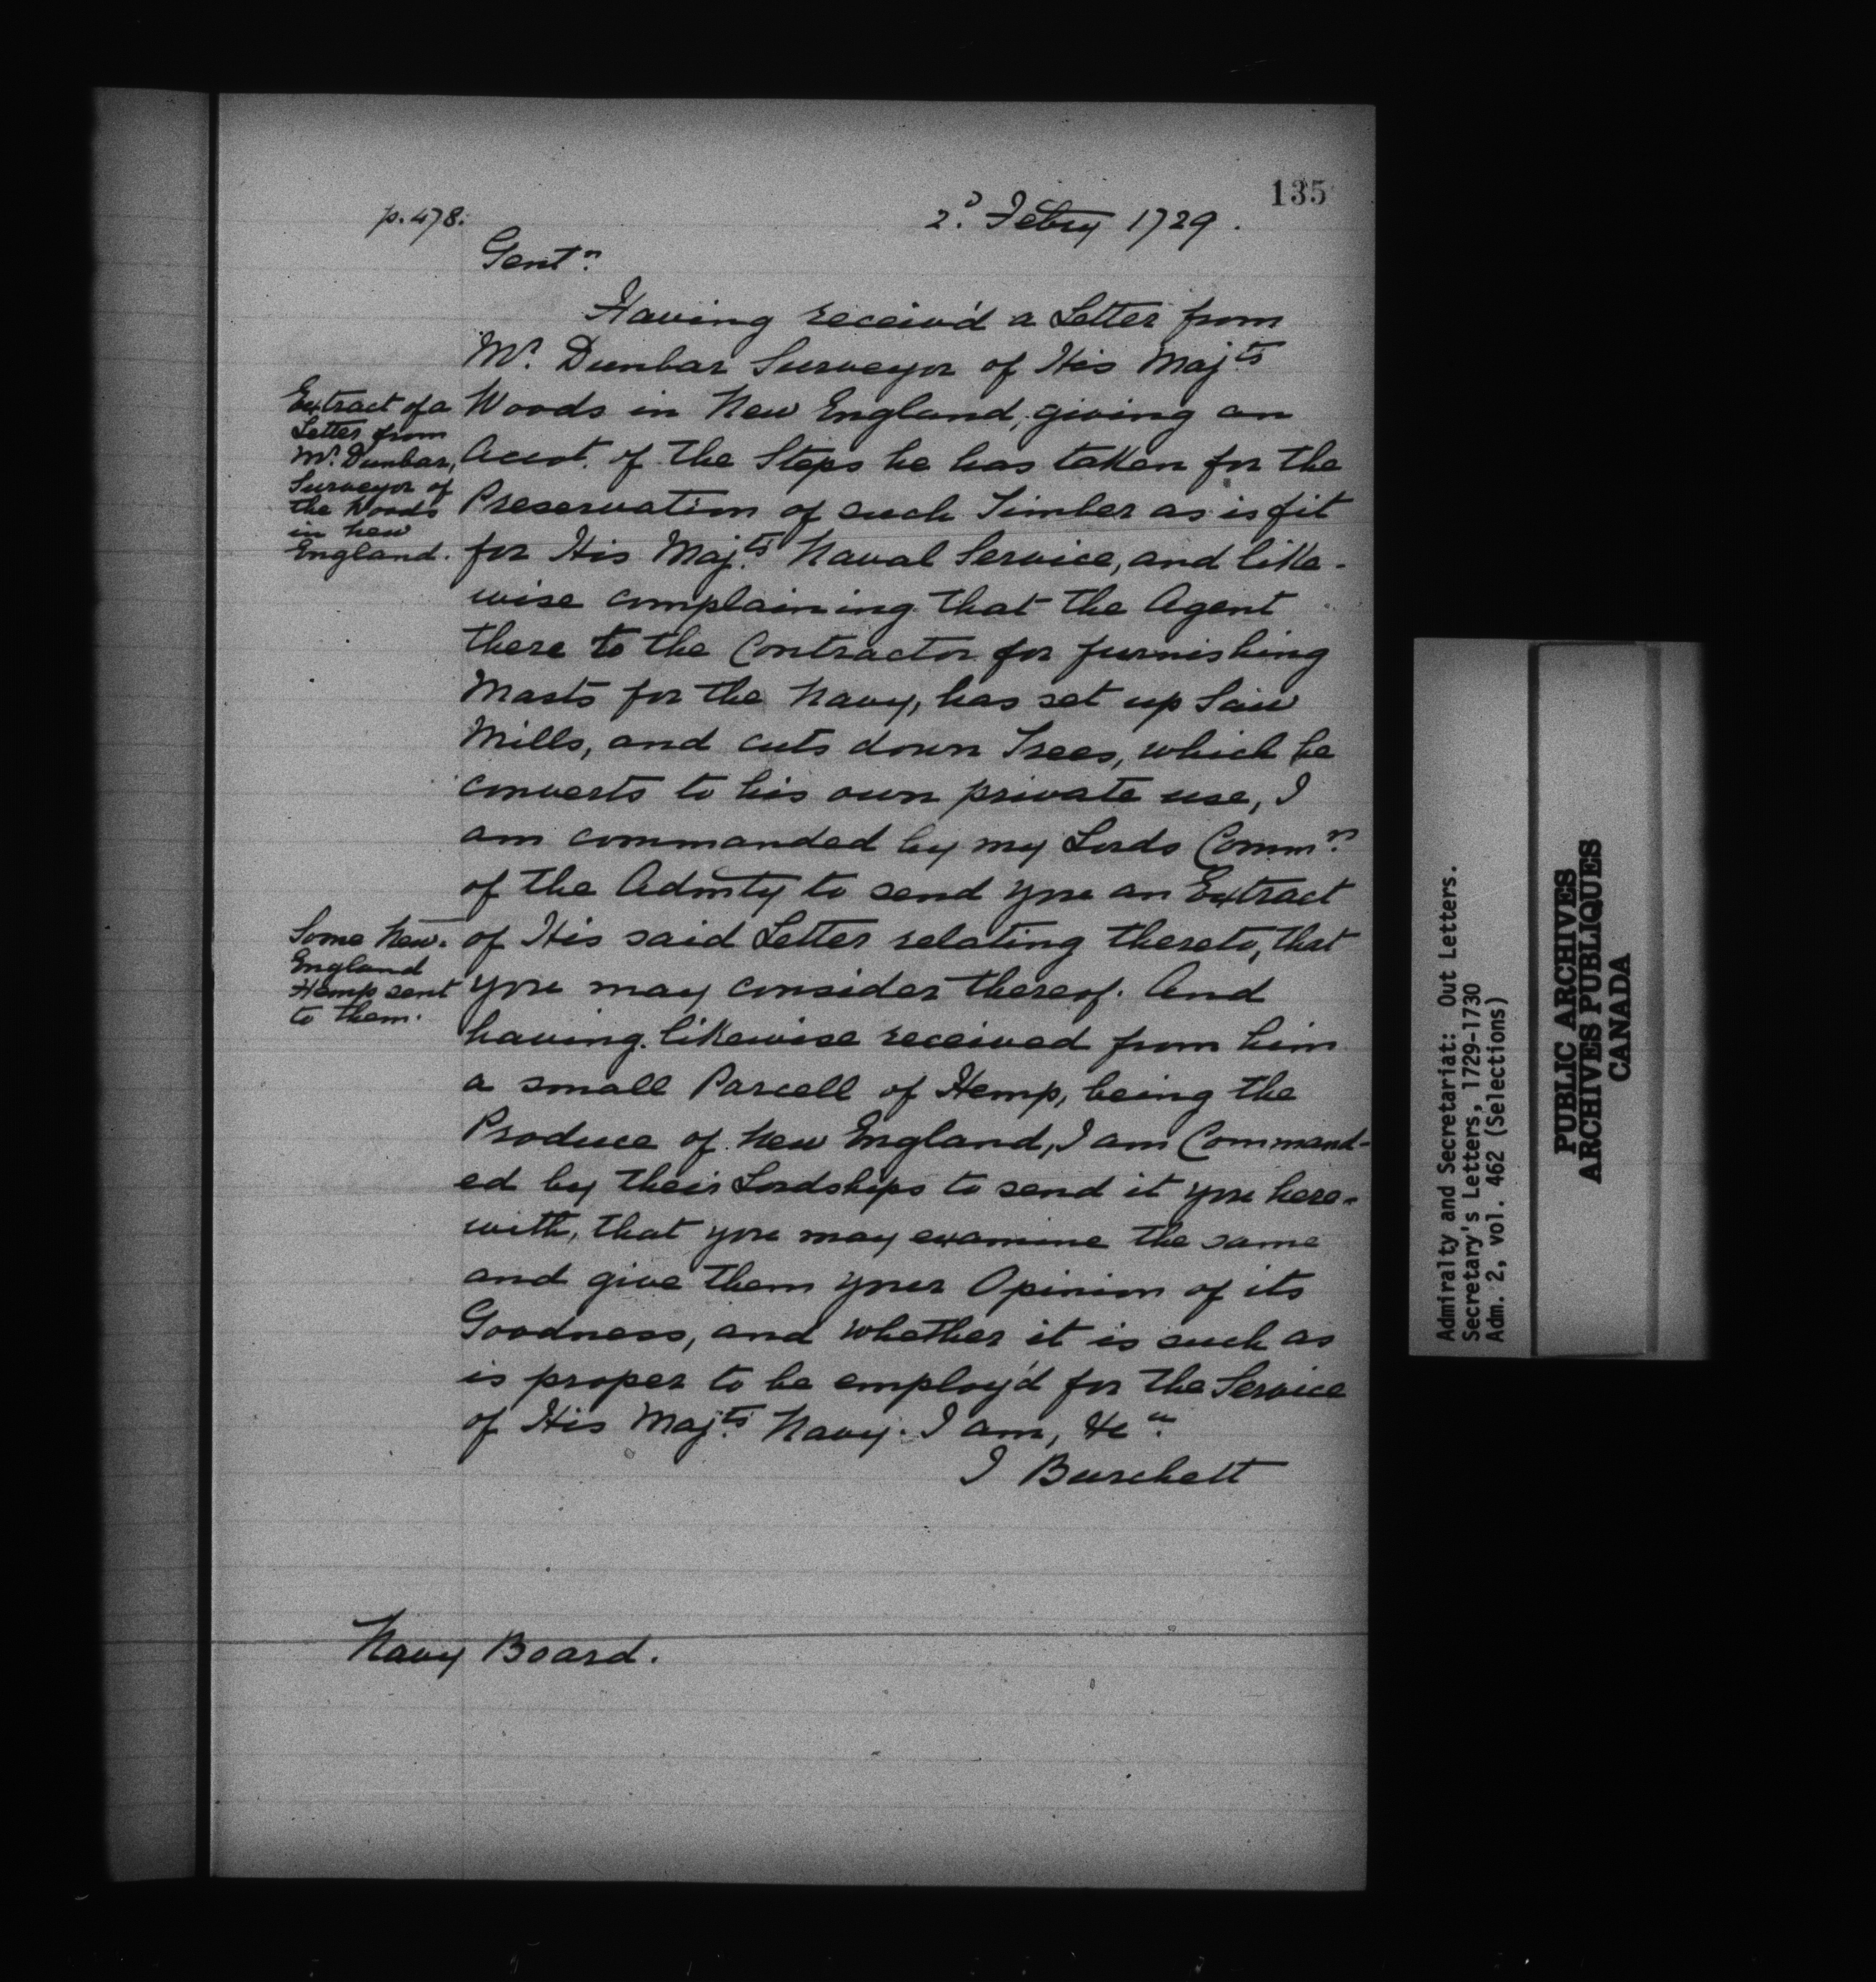 135
p. 478.
2.ᵈ Febry 1729.
Gentⁿ.
Having receiv'd a Letter from
Mʳ. Dunbar Surveyor of His Majᵗˢ
Woods in New England, giving an
Accot. of the Steps he has taken for the
Preservation of such Timber as is fit
for His Majᵗˢ. Naval Service, and like-
wise complaining that the Agent
there to the Contractor for furnishing
Masts for the Navy, has set up Saw
Mills, and cuts down Trees, which he
converts to his own private use, I
am commanded by my Lords Commʳˢ.
of the Admty to send you an Extract
of His said Letter relating thereto, that
you may consider thereof. And
having likewise received from him
a small Parcell of Hemp, being the
Produce of New England, I am Command-
ed by their Lordships to send it you here-
with, that you may examine the same
and give them your Opinion of its
Goodness, and whether it is such as
is proper to be employ'd for the Service
of His Majᵗˢ. Navy. I am, &cᵃ.
J Burchett
Extract of a
Letter from
Mʳ. Dunbar,
Surveyor of
the Woods
in New
England.
Some New-
England
Hemp sent
to them.
Navy Board.
Admiralty and Secretariat: Out Letters.
Secretary's Letters, 1729-1730
Adm. 2, vol. 462 (Selections)
PUBLIC ARCHIVES
ARCHIVES PUBLIQUES
CANADA